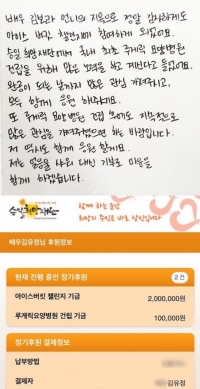 배우 김보라 언니의 지목으로 정말 감사하게도
아이스 버킷 챌린지에 참여하게 되었어요.
승일희망재단에서 국내 최초 루게릭 요양병원
건립을 위해 많은 노력을 하고 계신다고 들었어요.
완공이 되는 날까지 많은 관심 가져주시고,
모두 함께 응원해주세요.
또 루게릭 요양병원 건립 후에도 지속적으로
많은 관심을 가져주셨으면 하는 바람입니다.
저 역시도 함께 응원할게요.
저는 얼음물 샤워 대신 기부로 마음을
함께 하겠습니다.
승일희망재단
함께 하는 순간
희망의 주인공은 바로 당신입니다
배우김유정님 후원정보
현재 진행 중인 정기후원 2 건
아이스버킷 챌린지 기금 2,000,000원
루게릭요양병원 건립 기금 100,000원
정기후원 결제정보
납부방법
결제자 김유정